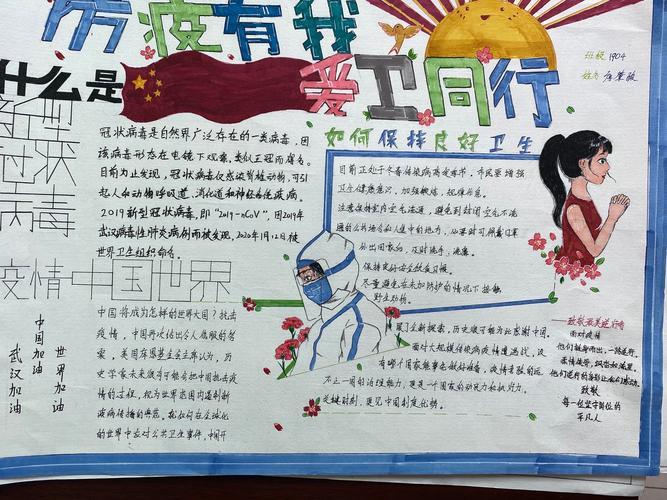 防疫有我
爱卫同行
班级 1904
姓名
什么是
新型
冠状
病毒
冠状病毒是自然界广泛存在的一类病毒，因
该病毒形态在电镜下观察，类似王冠而得名。
目前为止发现，冠状病毒仅感染脊椎动物，可引
起人和动物呼吸道、消化道和神经系统疾病。
2019新型冠状病毒，即"2019-nCoV"，因2019年
武汉病毒性肺炎病例而被发现，2020年1月12日被
世界卫生组织命名。
如何保持良好卫生
目前正处于冬春传染病高发季节，市民要增强
卫生健康意识，加强锻炼，规律作息。
注意保持室内空气流通，避免到封闭空气不流
通的公共场合和人集中的地方，必要时可佩戴口罩
外出回家后，及时洗手，洗鼻。
保持良好安全饮食习惯。
尽量避免在未加防护的情况下接触
野生动物。
疫情中国世界
中国加油
武汉加油
世界加油
中国将成为怎样的世界大国？抗击
疫情，中国再次给出令人信服的答
案，美国库恩基金会主席认为，历
史学家未来很可能会把中国抗击疫
情的过程，视为世界范围内遏制新
发病传播的典范，我们何在全球化
的世界中应对公共卫生事件，中国开
展了全新探索，历史很可能为此感谢中国，
面对大规模传染病疫情遭遇战，没
有哪个国家能事先做好准备，疫情考验的远
不止一国的治理能力，更是一个国家的动员力和执行力。
关键时刻，更见中国制度优势。
致敬最美逆行者
面对疫情
他们挺身而出，一路逆行。
致敬
每一位坚守岗位的
平凡人